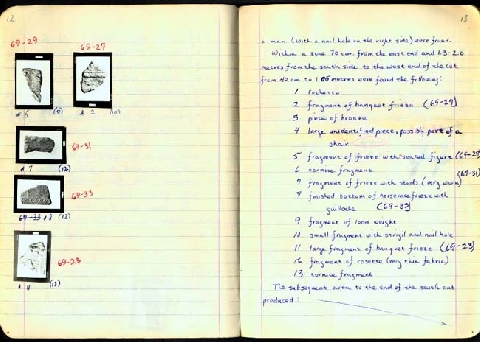 12
69-29
69-27
(5)
(10)
69-31
A 7 (12)
69-33
69-33 (12)
69-23
(13)
13
a man (with a nail hole on the right side) were found.
Within a zone 70 cm. from the east end and 1.3-2.0
metres from the south side to the west end of the cut
from 40 cm to 1.00 metres were found the following:
1
2 fragment of banquet frieze (69-29)
3 piece of bronze
4 large unidentified piece, possibly part of a
chair
5 fragment of frieze with seated figure (69-27)
6 cornice fragment (69-31)
7 fragment of frieze with (very worn)
8 finished bottom of frieze with
guilloche (69-33)
9 fragment of loom weight
10 small fragment with strigil and nail hole
11 large fragment of banquet frieze (69-23)
12 fragment of (very fine fabric)
13 cornice fragment
The subsequent area to the end of the south cut
produced: